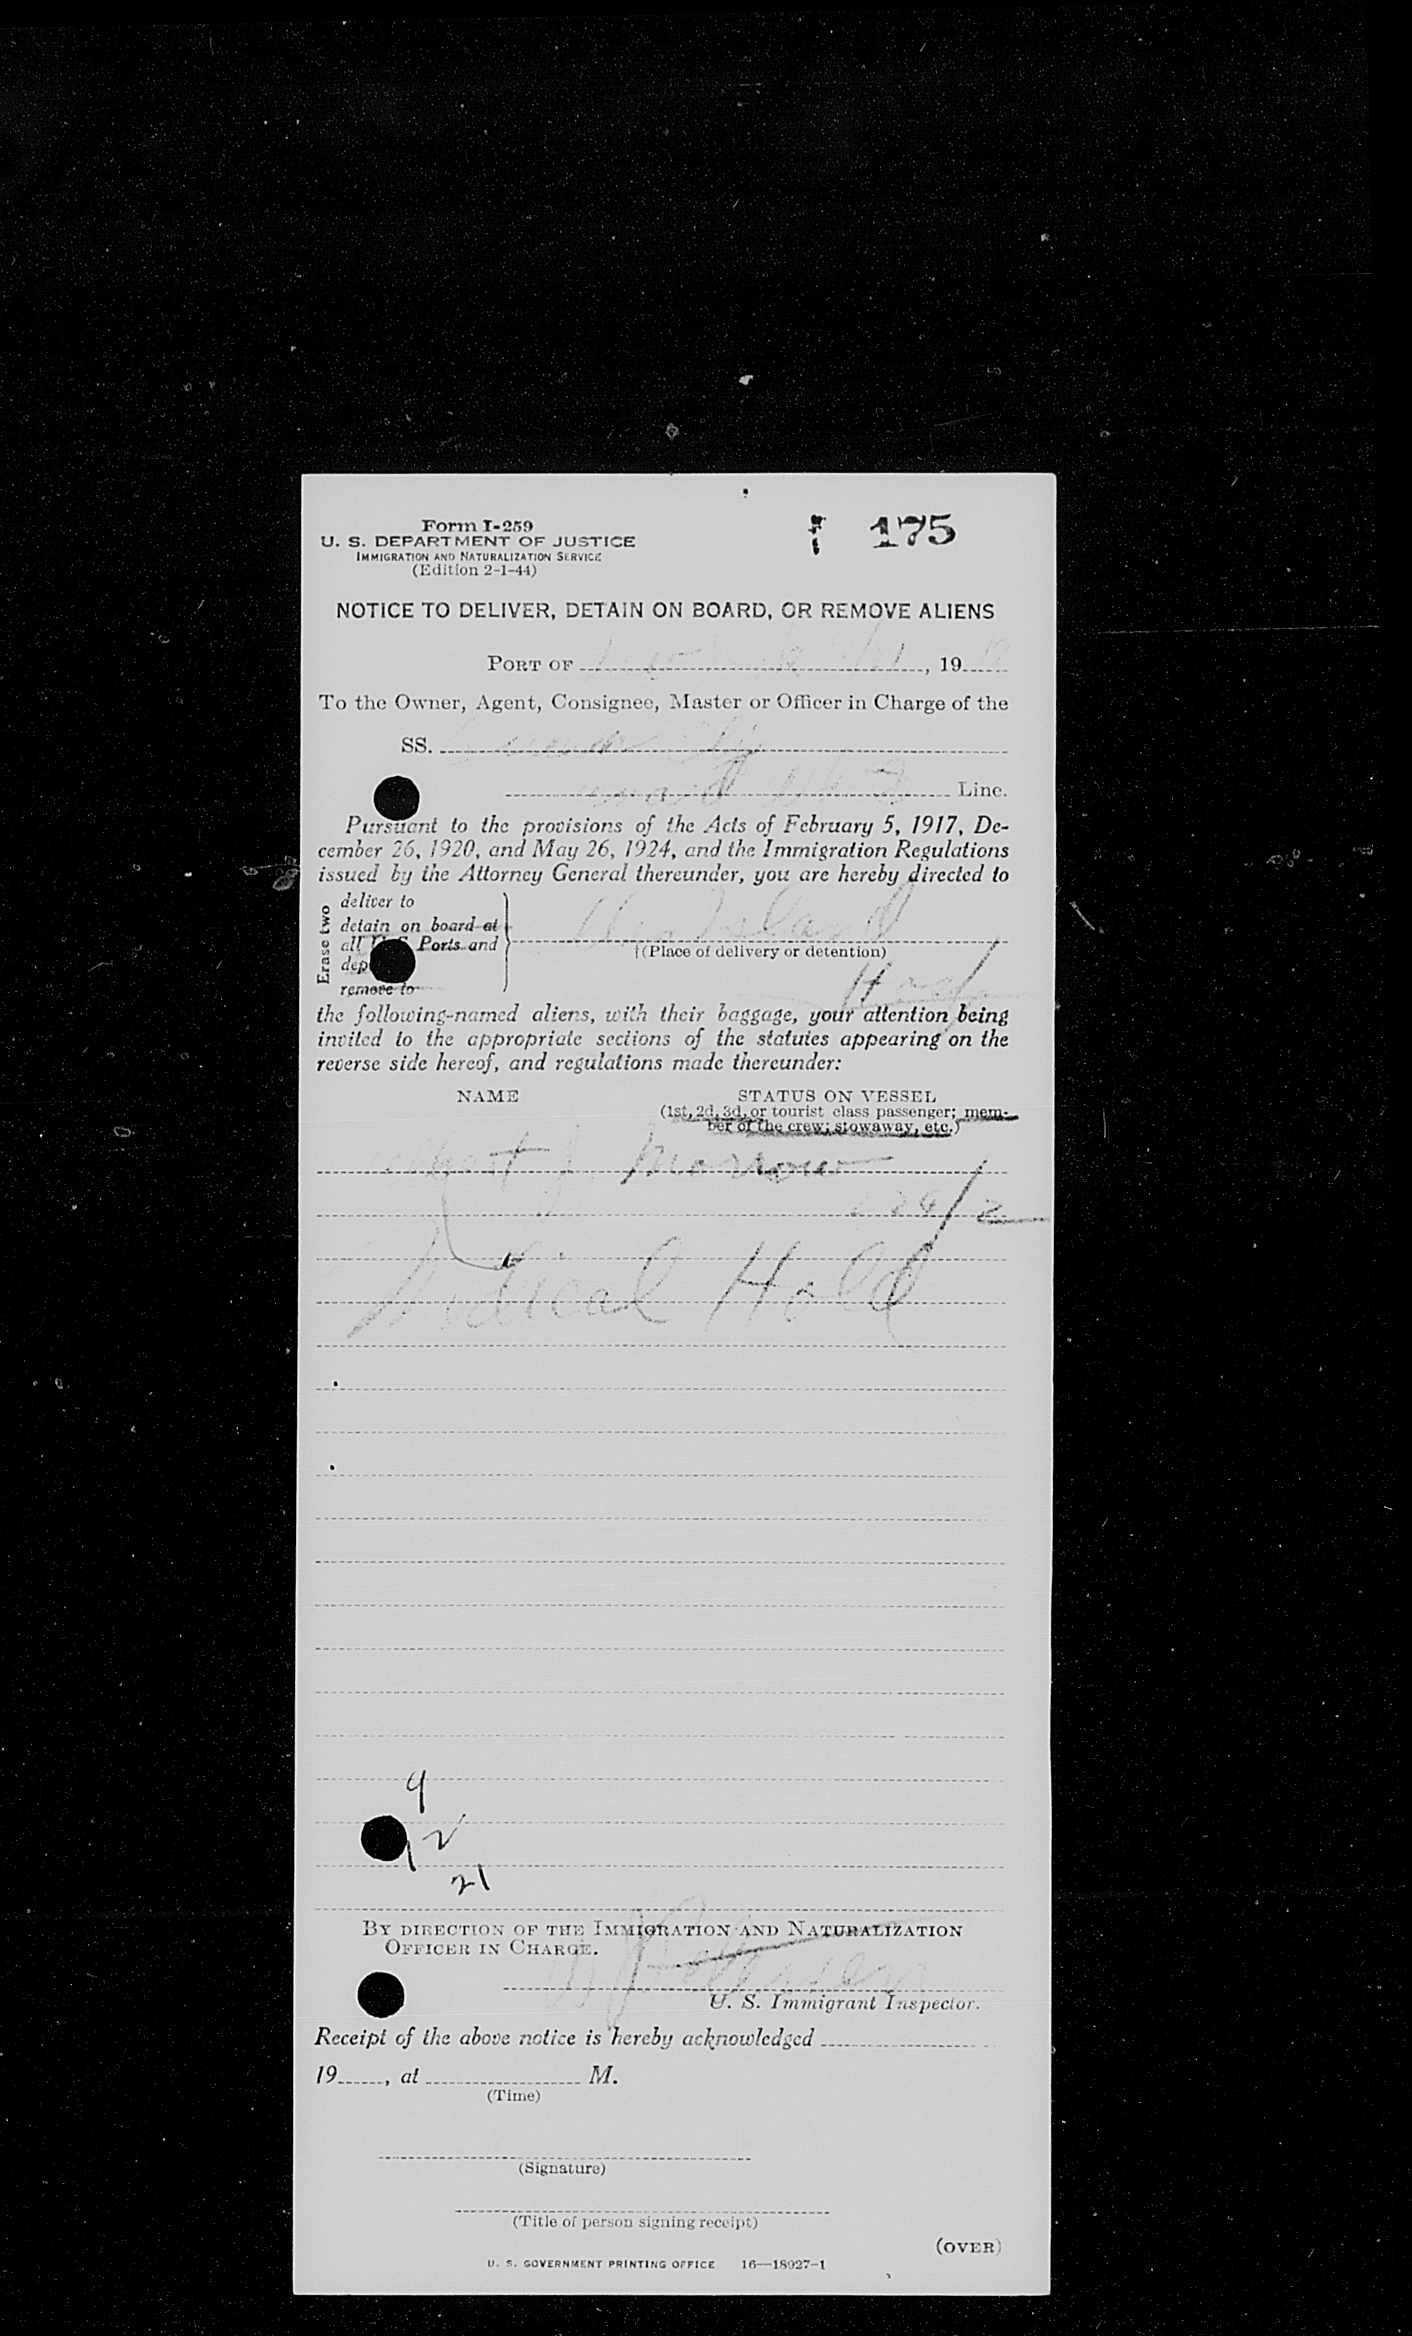 Form I-259
U. S. DEPARTMENT OF JUSTICE
IMMIGRATION AND NATURALIZATION SERVICE
(Edition 2-1-44)
175
NOTICE TO DELIVER, DETAIN ON BOARD, OR REMOVE ALIENS
PORT OF , 19
To the Owner, Agent, Consignee, Master or Officer in Charge of the
SS.
Line.
Pursuant to the provisions of the Acts of February 5, 1917, De-
cember 26, 1920, and May 26, 1924, and the Immigration Regulations
issued by the Attorney General thereunder, you are hereby directed to
Erase two
deliver to
detain on board at
all Ports and
dep
remove to
Island
†(Place of delivery or detention)
the following-named aliens, with their baggage, your attention being
invited to the appropriate sections of the statutes appearing on the
reverse side hereof, and regulations made thereunder:
NAME STATUS ON VESSEL
(1st, 2d, 3d, or tourist class passenger; mem-
ber of the crew; stowaway, etc.)
J Morrow
Medical Hold
9
12
21
BY DIRECTION OF THE IMMIGRATION AND NATURALIZATION
OFFICER IN CHARGE.
U. S. Immigrant Inspector.
Receipt of the above notice is hereby acknowledged
19 , at M.
(Time)
(Signature)
(Title of person signing receipt)
(OVER)
U. S. GOVERNMENT PRINTING OFFICE 16—18927-1